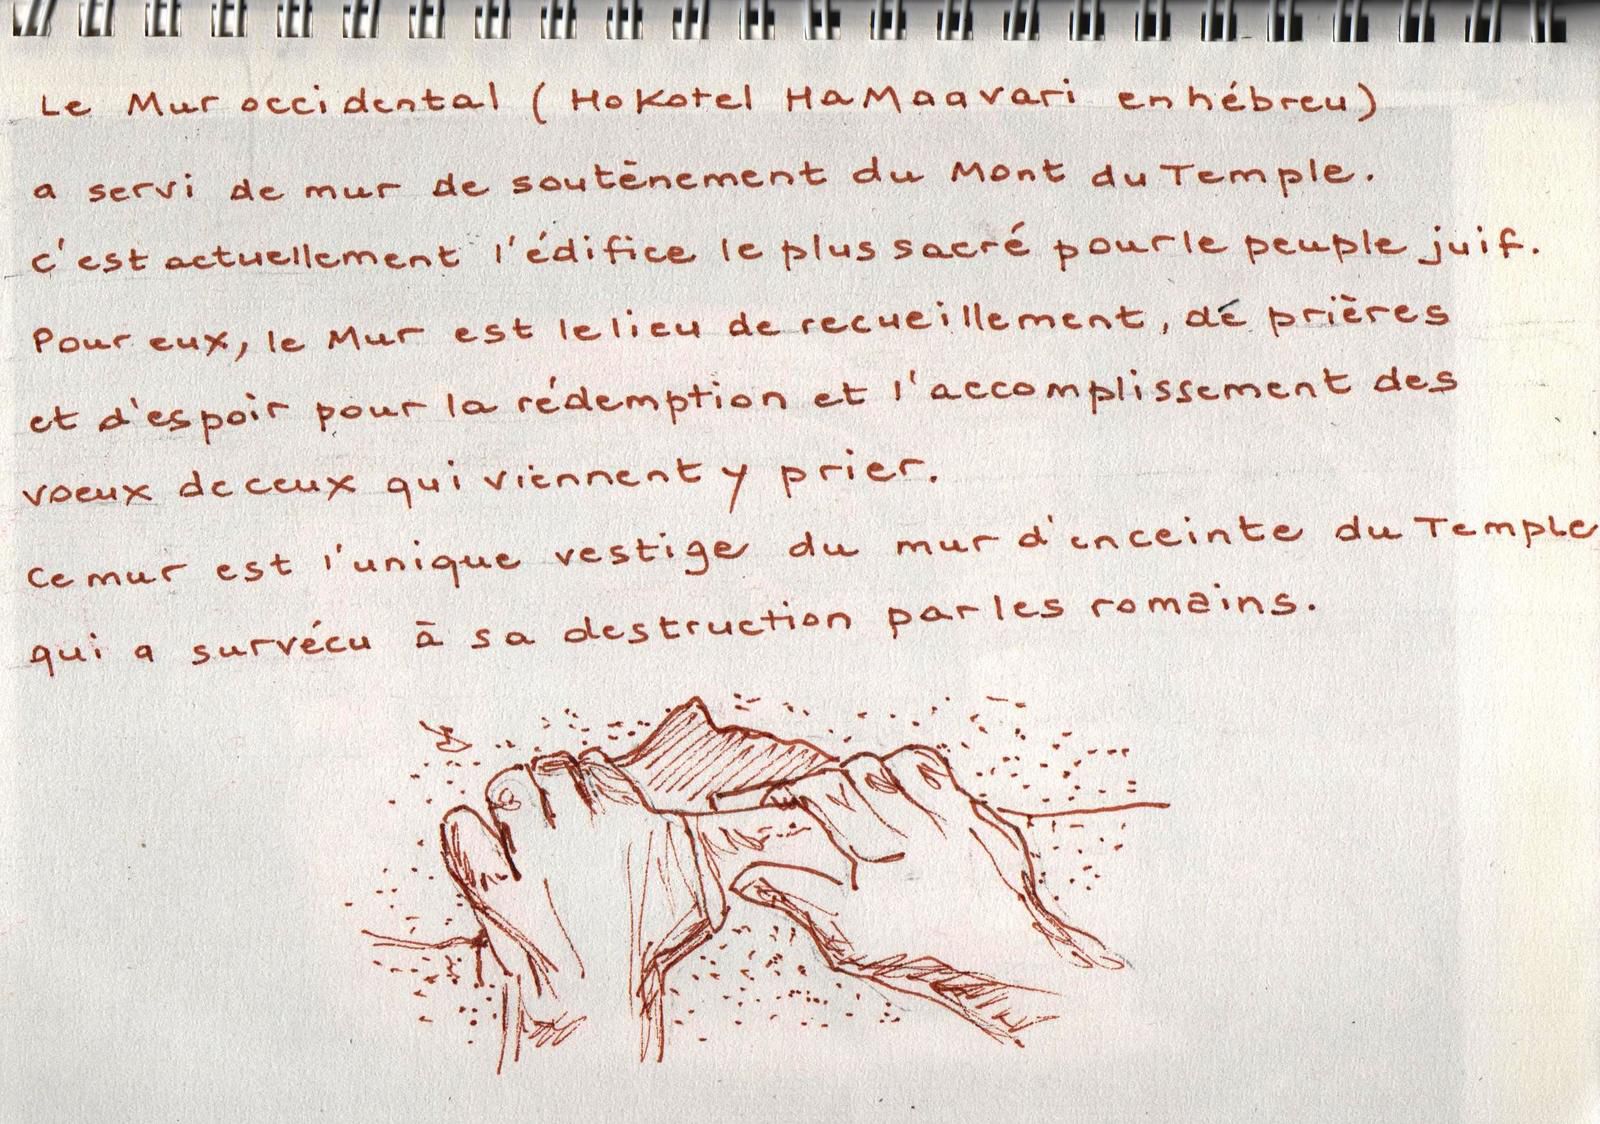 Le Mur occidental (HoKotel HaMaavari en hébreu)
a servi de mur de soutènement du Mont du Temple.
c'est actuellement l'édifice le plus sacré pour le peuple juif.
Pour eux, le Mur est le lieu de recueillement, de prières
et d'espoir pour la rédemption et l'accomplissement des
voeux de ceux qui viennent y prier.
Ce mur est l'unique vestige du mur d'enceinte du Temple
qui a survécu à sa destruction par les romains.